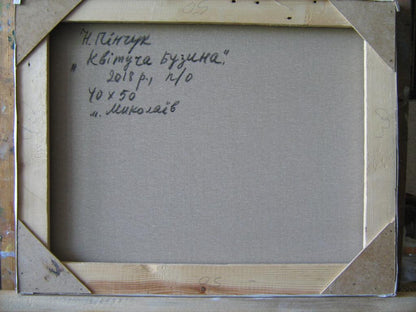 Н. Пінчук
"Квітуча Бузина".
2018 р., п/о
40 х 50
м. Миколаїв